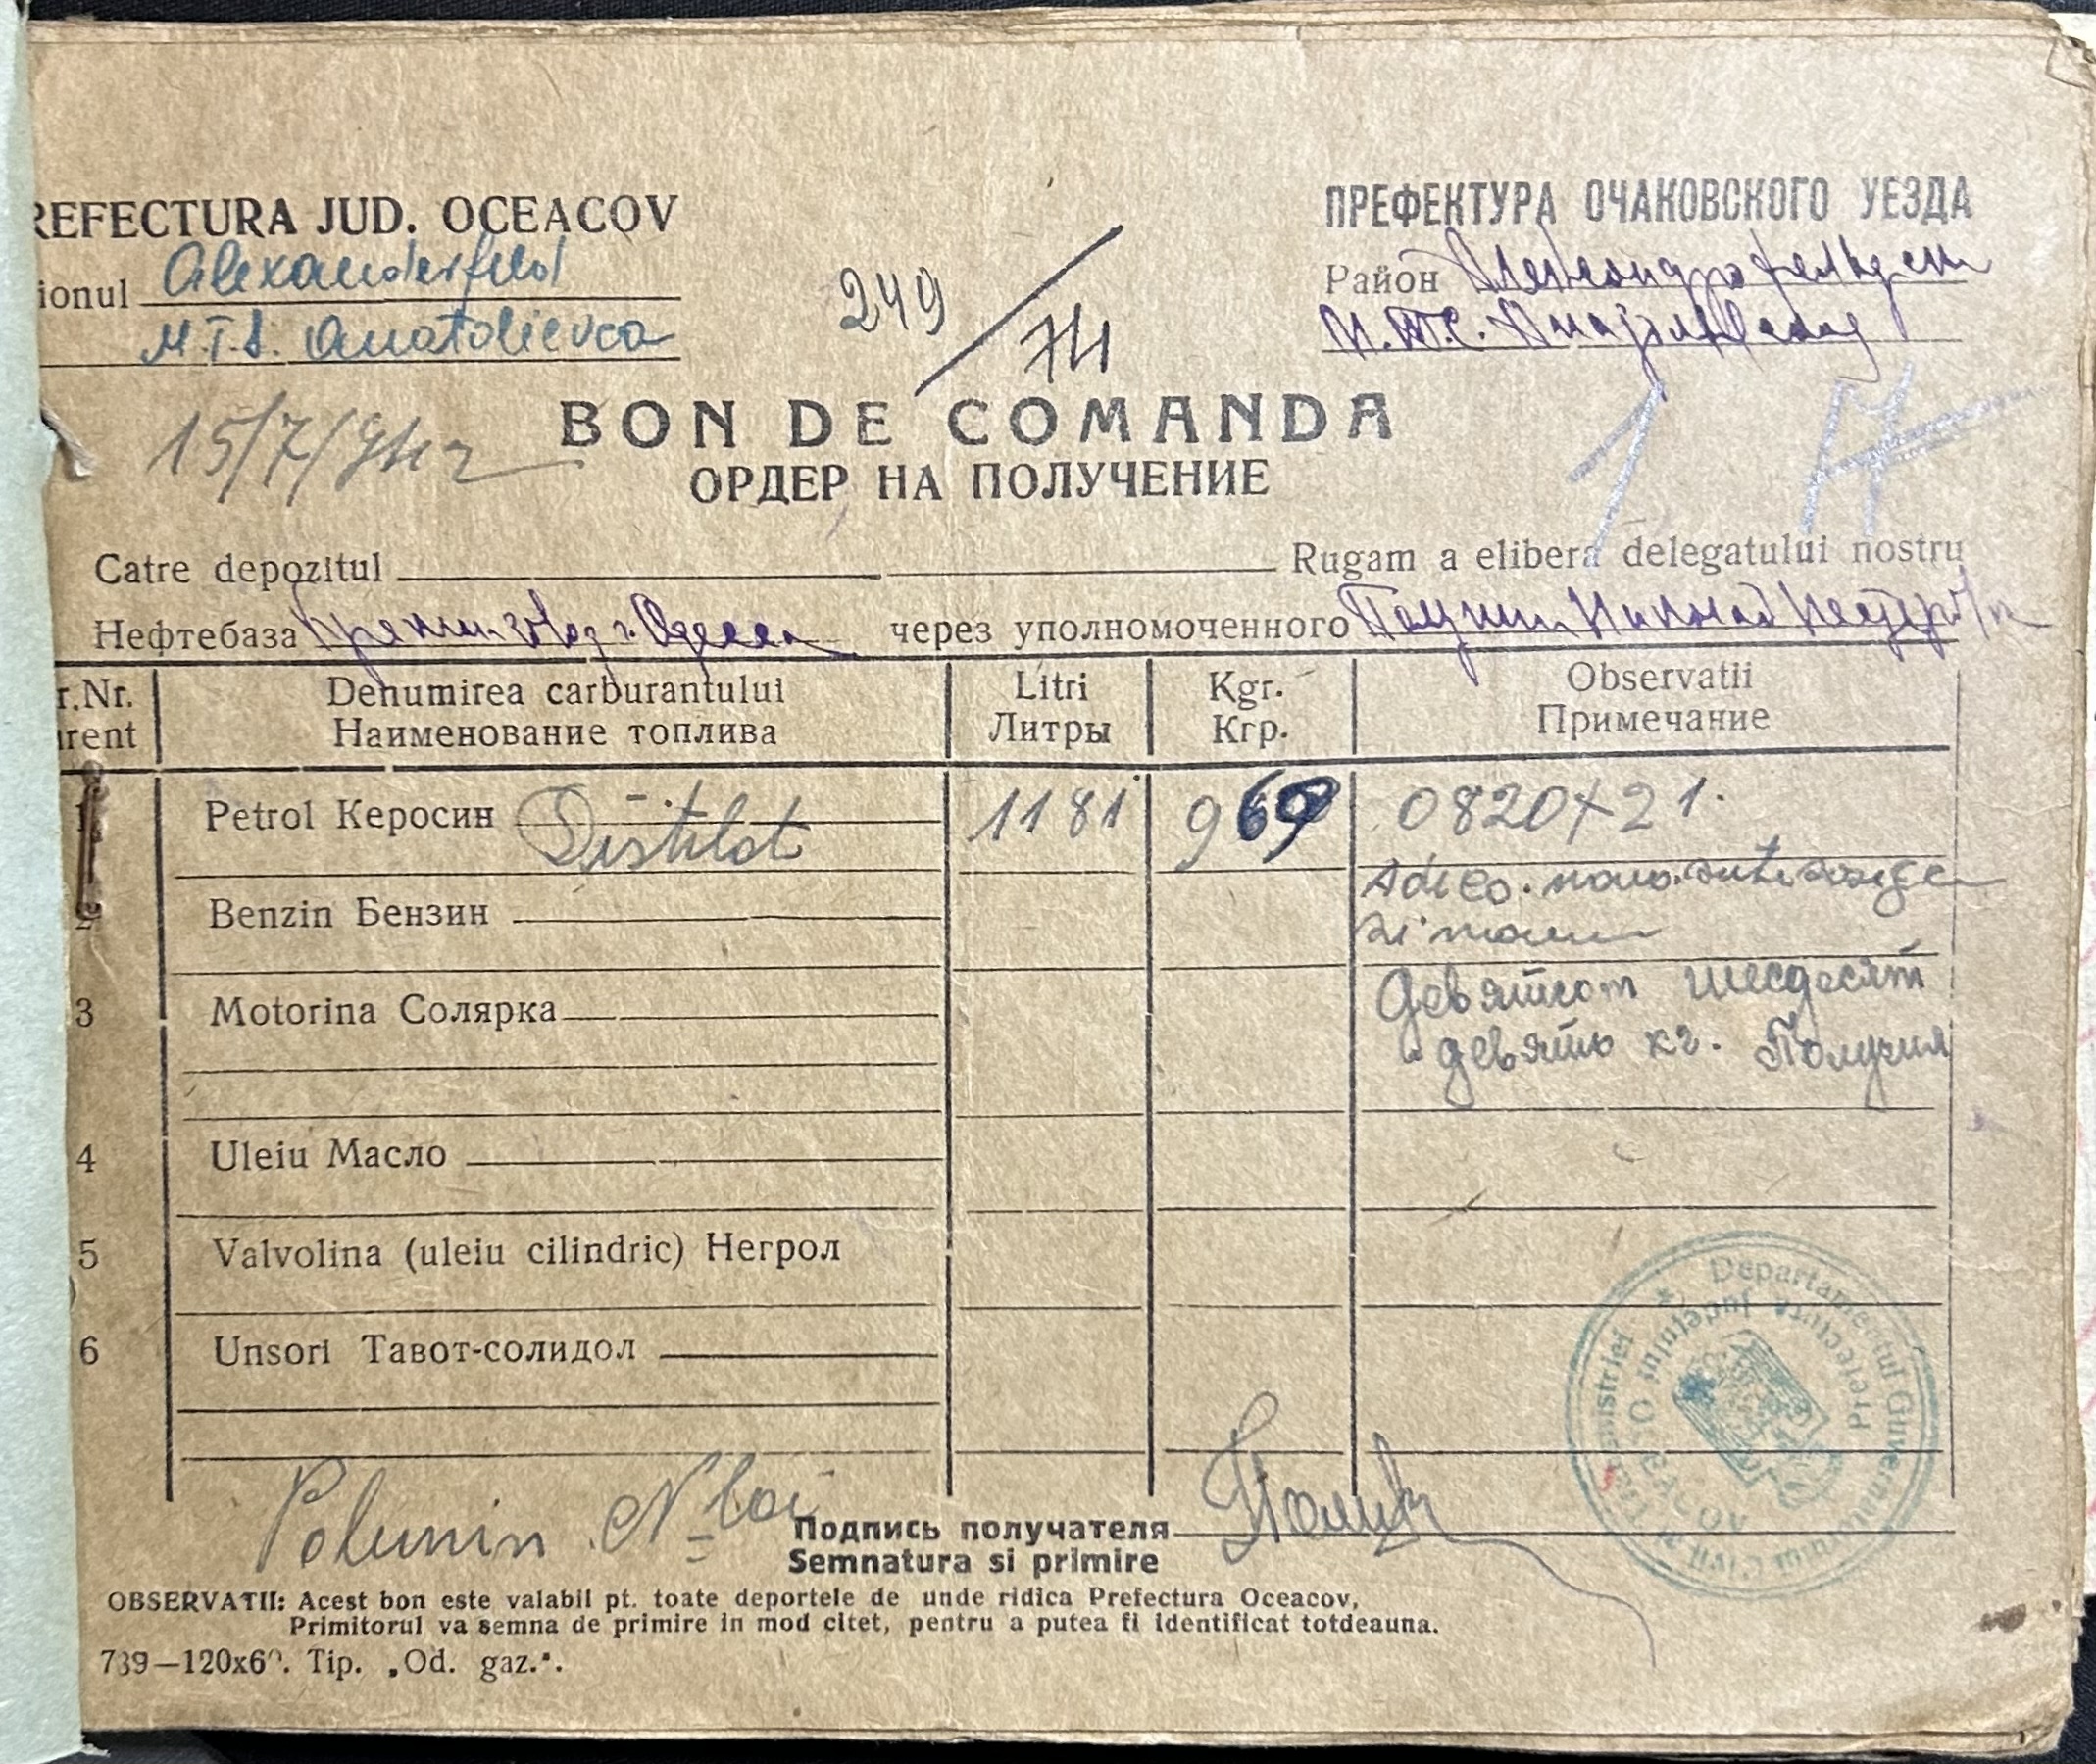 REFECTURA JUD. OCEACOV
ionul Alexanderfeld
M.T.S. Anatolievca
249/74
ПРЕФЕКТУРА ОЧАКОВСКОГО УЕЗДА
Район
15/7/942
BON DE COMANDA
ОРДЕР НА ПОЛУЧЕНИЕ
1
Catre depozitul Rugam a elibera delegatului nostru
Нефтебаза г. Одесса через уполномоченного Полунин Николай
r.Nr. Denumirea carburantului Litri Kgr. Observatii
rent Наименование топлива Литры Кгр. Примечание
1 Petrol Керосин Distilat 1181 969 0820+21.
Adico
2 Benzin Бензин
si
3 Motorina Солярка Девятсот шесдесят
девять кг. Получил
4 Uleiu Масло
5 Valvolina (uleiu cilindric) Негрол
6 Unsori Тавот-солидол
Departamentul Guvernatorului Civil al Transnistriei
Prefectura Județului Oceacov
Polunin N-lai
Подпись получателя
Semnatura si primire
OBSERVATII: Acest bon este valabil pt. toate deportele de unde ridica Prefectura Oceacov,
Primitorul va semna de primire in mod citet, pentru a putea fi identificat totdeauna.
739—120x60. Tip. „Od. gaz.“.